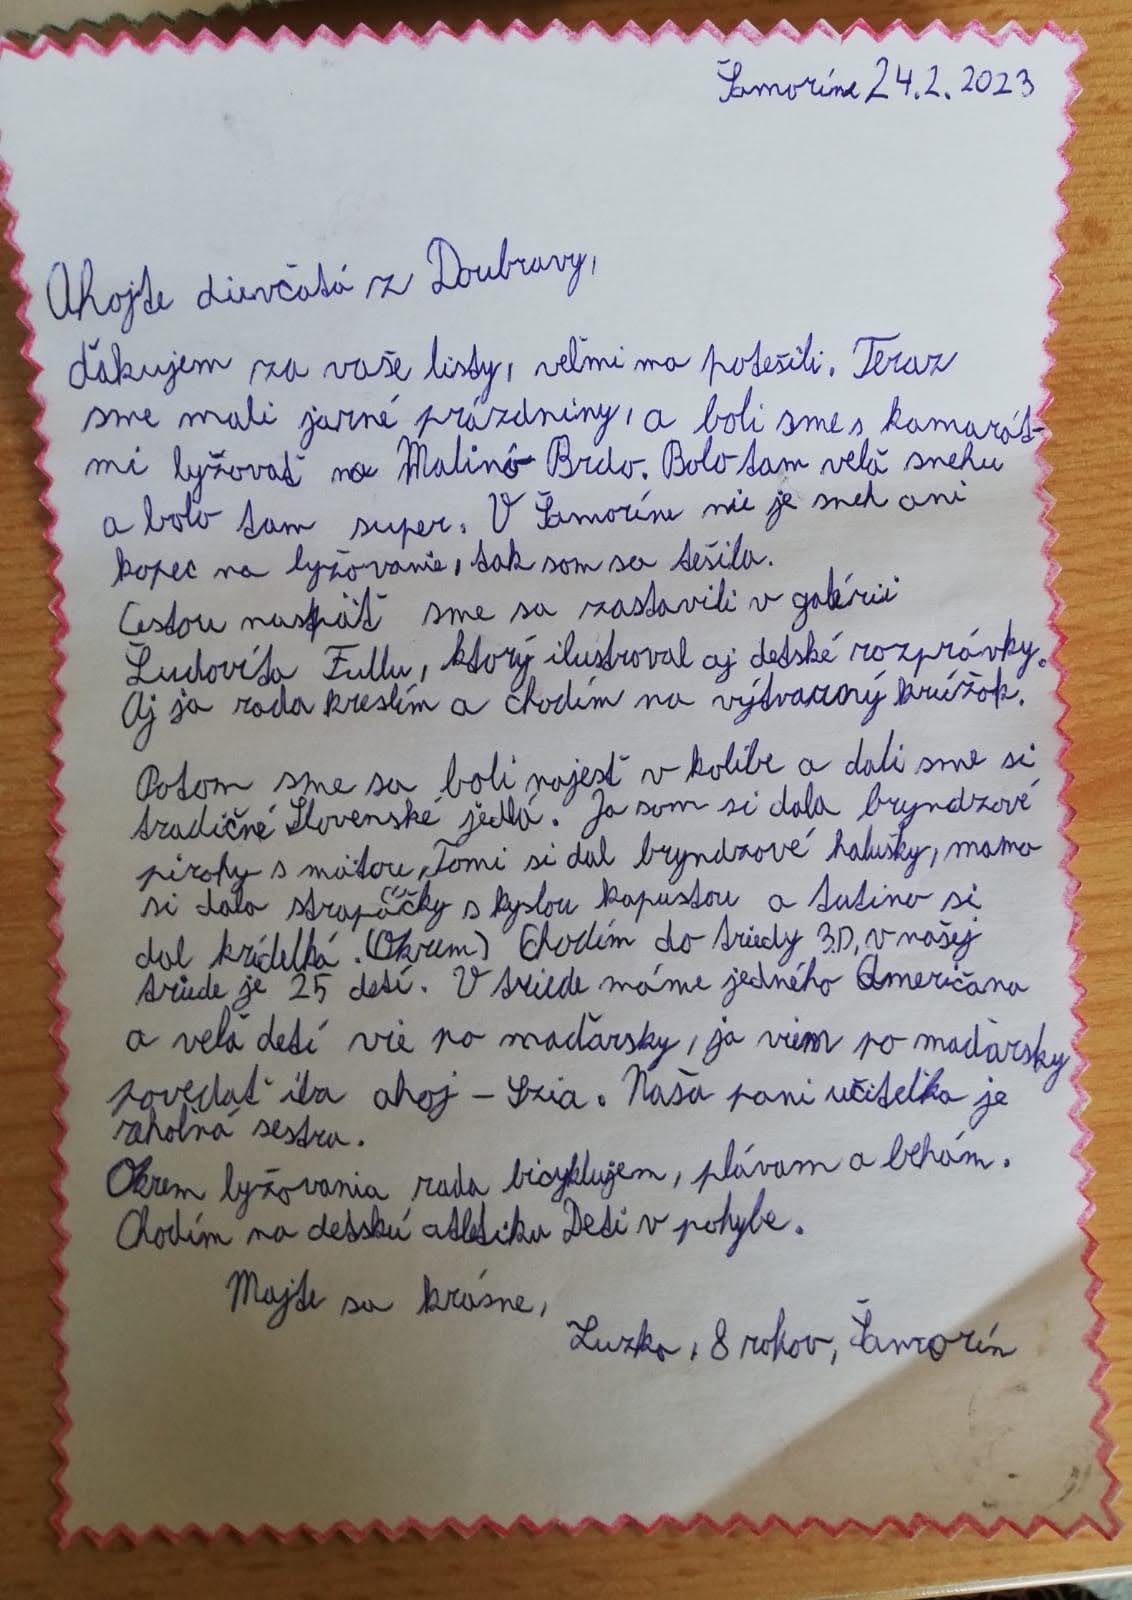 Šamoríne 24.2.2023
Ahojte dievčatá z Doubravy,
ďakujem za vaše listy, veľmi ma potešili. Teraz
sme mali jarné prázdniny, a boli sme s kamarát-
mi lyžovať na Malinô Brdo. Bolo tam veľa snehu
a bolo tam super. V Šamoríne nie je sneh ani
kopec na lyžovanie, tak som sa tešila.
Cestou naspäť sme sa zastavili v galérii
Ľudovíta Fullu, ktorý ilustroval aj detské rozprávky.
Aj ja rada kreslím a chodím na výtvarný krúžok.
Potom sme sa boli najesť v kolibe a dali sme si
tradičné Slovenské jedlá. Ja som si dala bryndzové
pirohy s mätou, Tomi si dal bryndzové halušky, mama
si dala strapačky s kyslou kapustou a tatino si
dal krídelká. (Okrem) Chodím do triedy 3.D, v našej
triede je 25 detí. V triede máme jedného Američana
a veľa detí vie po maďarsky, ja viem po maďarsky
povedať iba ahoj - Szia. Naša pani učiteľka je
rehoľná sestra.
Okrem lyžovania rada bicyklujem, plávam a behám.
Chodím na detskú atletiku Deti v pohybe.
Majte sa krásne,
Luzka, 8 rokov, Šamorín